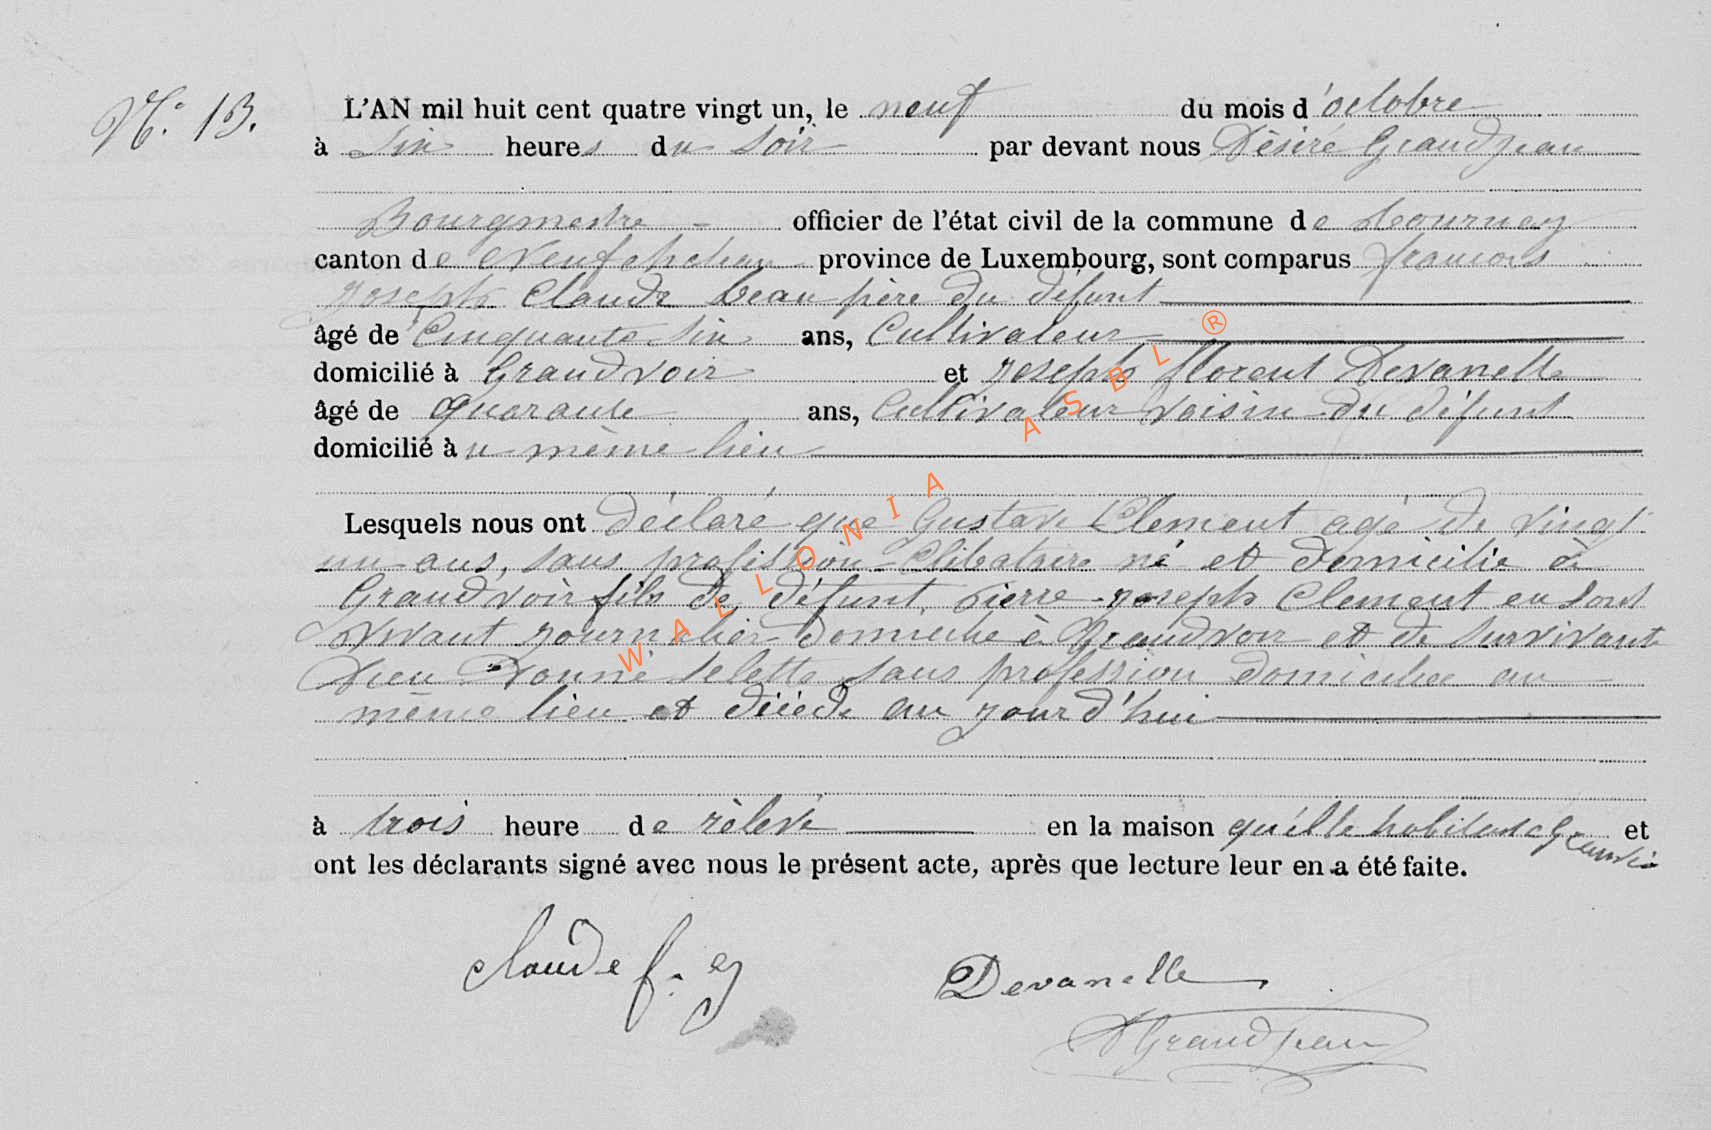 N.° 13.
L'AN mil huit cent quatre vingt un, le neuf du mois d'octobre
à six heures du soir par devant nous Désiré Grandjean
Bourgmestre - officier de l'état civil de la commune de Tournay
canton de Neufchateau province de Luxembourg, sont comparus francois
Joseph Claude beau père du défunt
âgé de Cinquante six ans, Cultivateur
domicilié à Grandvoir et Joseph florent Devanelle
âgé de Quarante ans, Cultivateur voisin du défunt
domicilié au même lieu
Lesquels nous ont déclaré que Gustave Clement agé de vingt
un ans, sans profession Célibataire né et domicilié à
Grandvoir fils de défunt Pierre Joseph Clement en son
vivant journalier domicilié à Grandvoir et de survivante
Dieu Donné sans profession domiciliée au
même lieu et décédé aujourd'hui
à trois heure de rèlevé en la maison qu'elle habitait à Grandvoir et
ont les déclarants signé avec nous le présent acte, après que lecture leur en a été faite.
Claude f. j
Devanelle
D Grandjean
WALLONIA ASBL ®